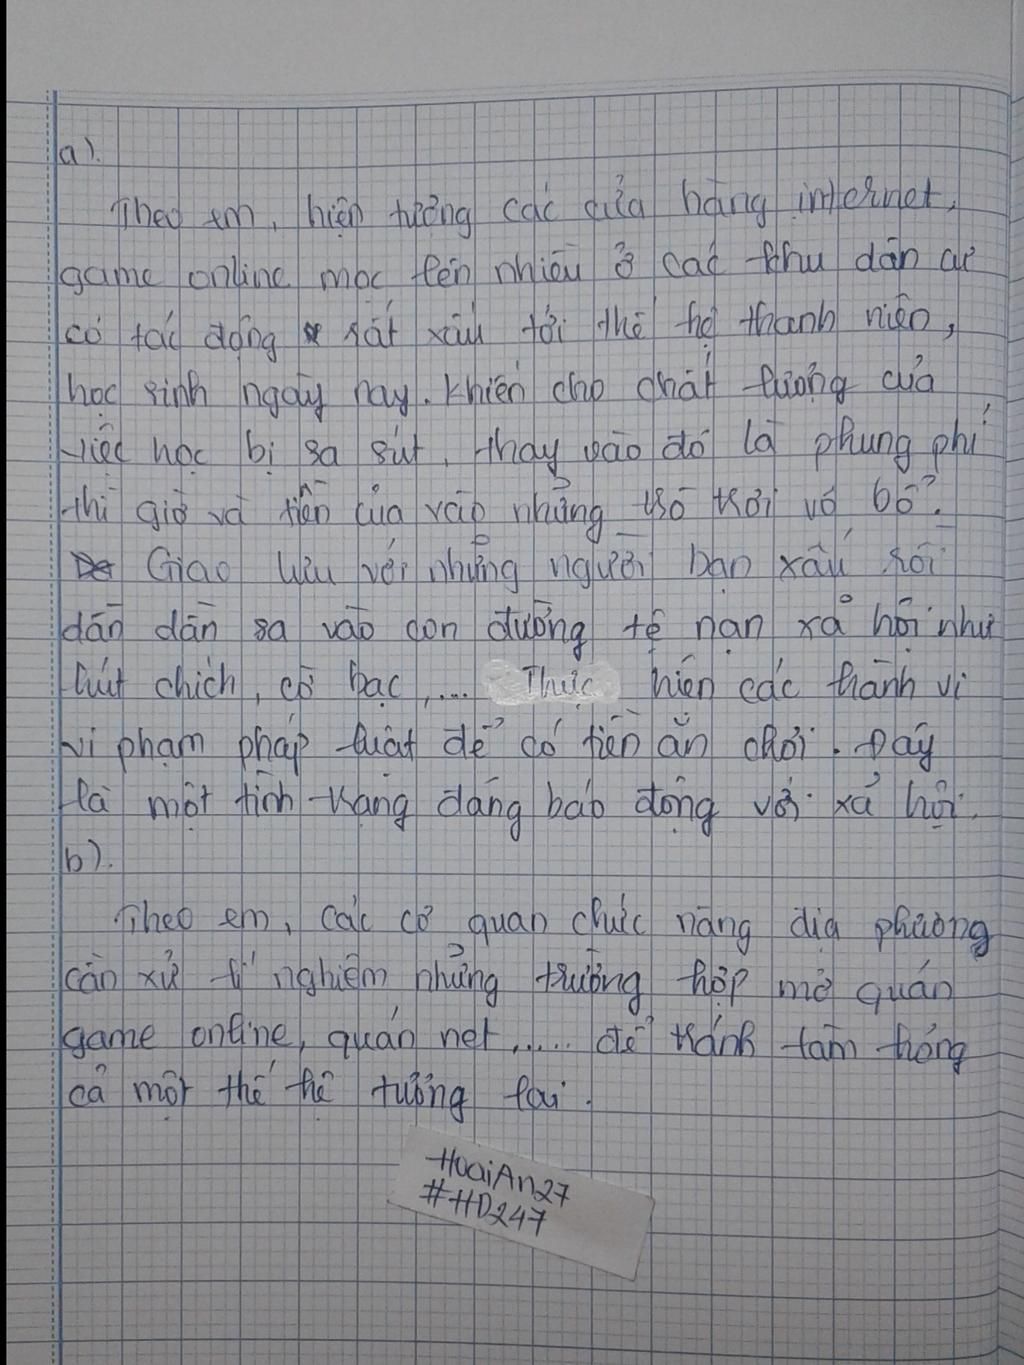 a).
Theo em, hiện tượng các cửa hàng internet,
game online mọc lên nhiều ở các khu dân cư
có tác động rất xấu tới thế hệ thanh niên,
học sinh ngày nay. Khiến cho chất lượng của
việc học bị sa sút, thay vào đó là phung phí
thì giờ và tiền của vào những trò trơi vô bổ.
Giao lưu với những người bạn xấu rồi
dần dần sa vào con đường tệ nạn xả hội như
hút chích, cờ bạc,.... Thực hiện các hành vi
vi phạm pháp luật để có tiền ăn chơi. Đây
là một tình trạng đáng báo động với xả hội.
b).
Theo em, các cơ quan chức năng địa phương
cần xử lí nghiêm những trường hợp mở quán
game online, quán net,.... để tránh làm hỏng
cả một thế hệ tương lai.
HoaiAn27
#HD247